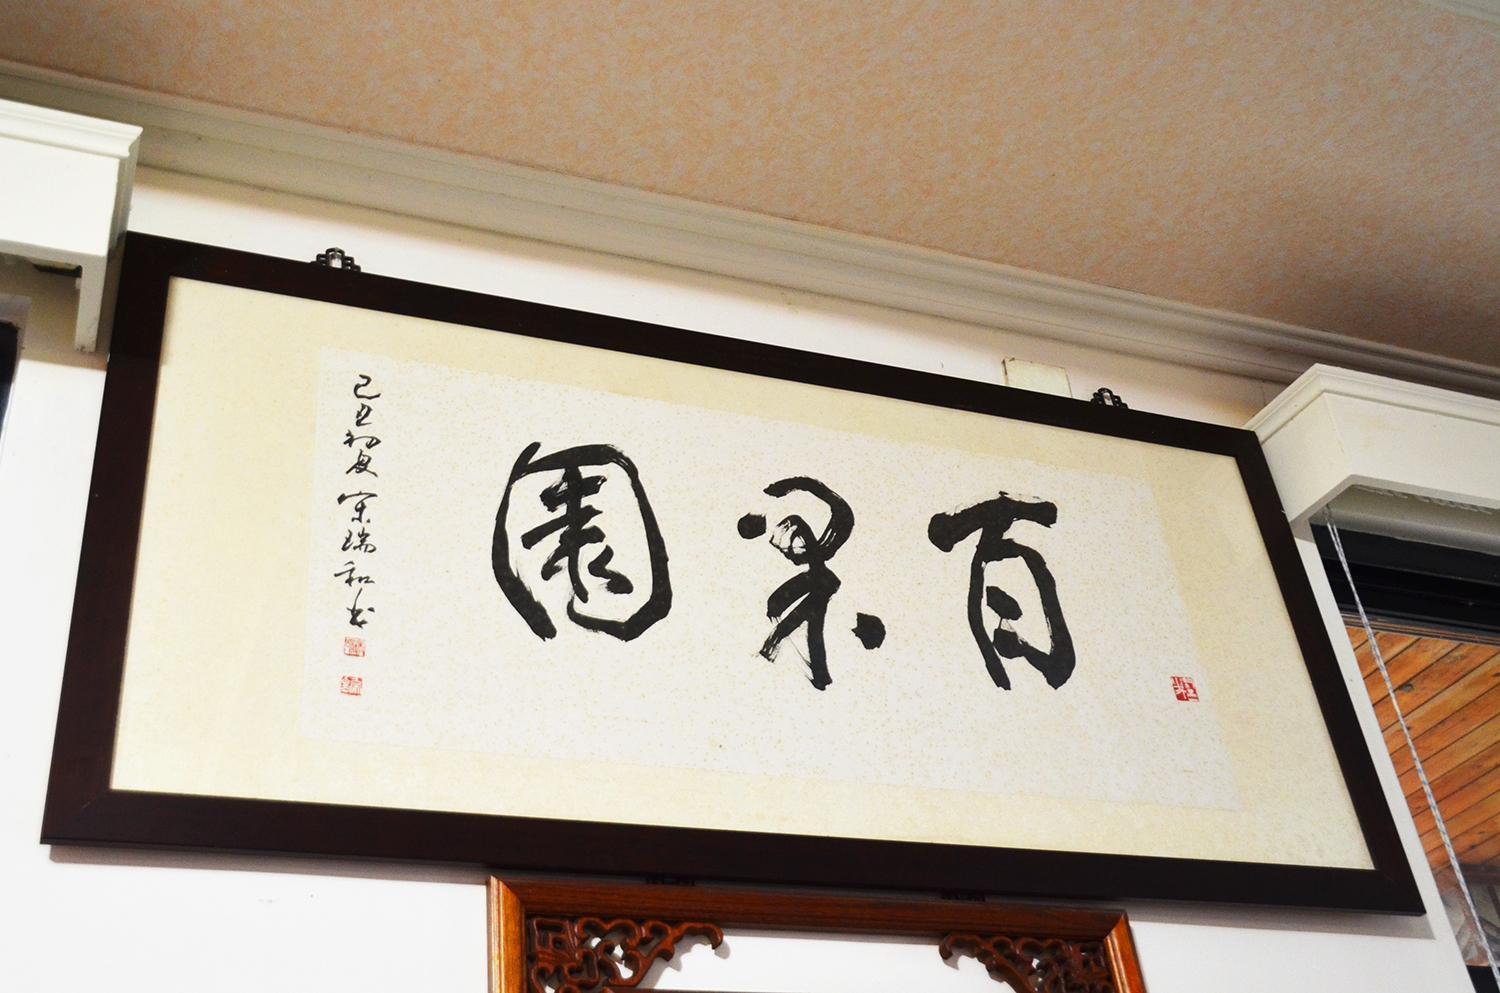 百果園
己丑初夏 宋瑞和书